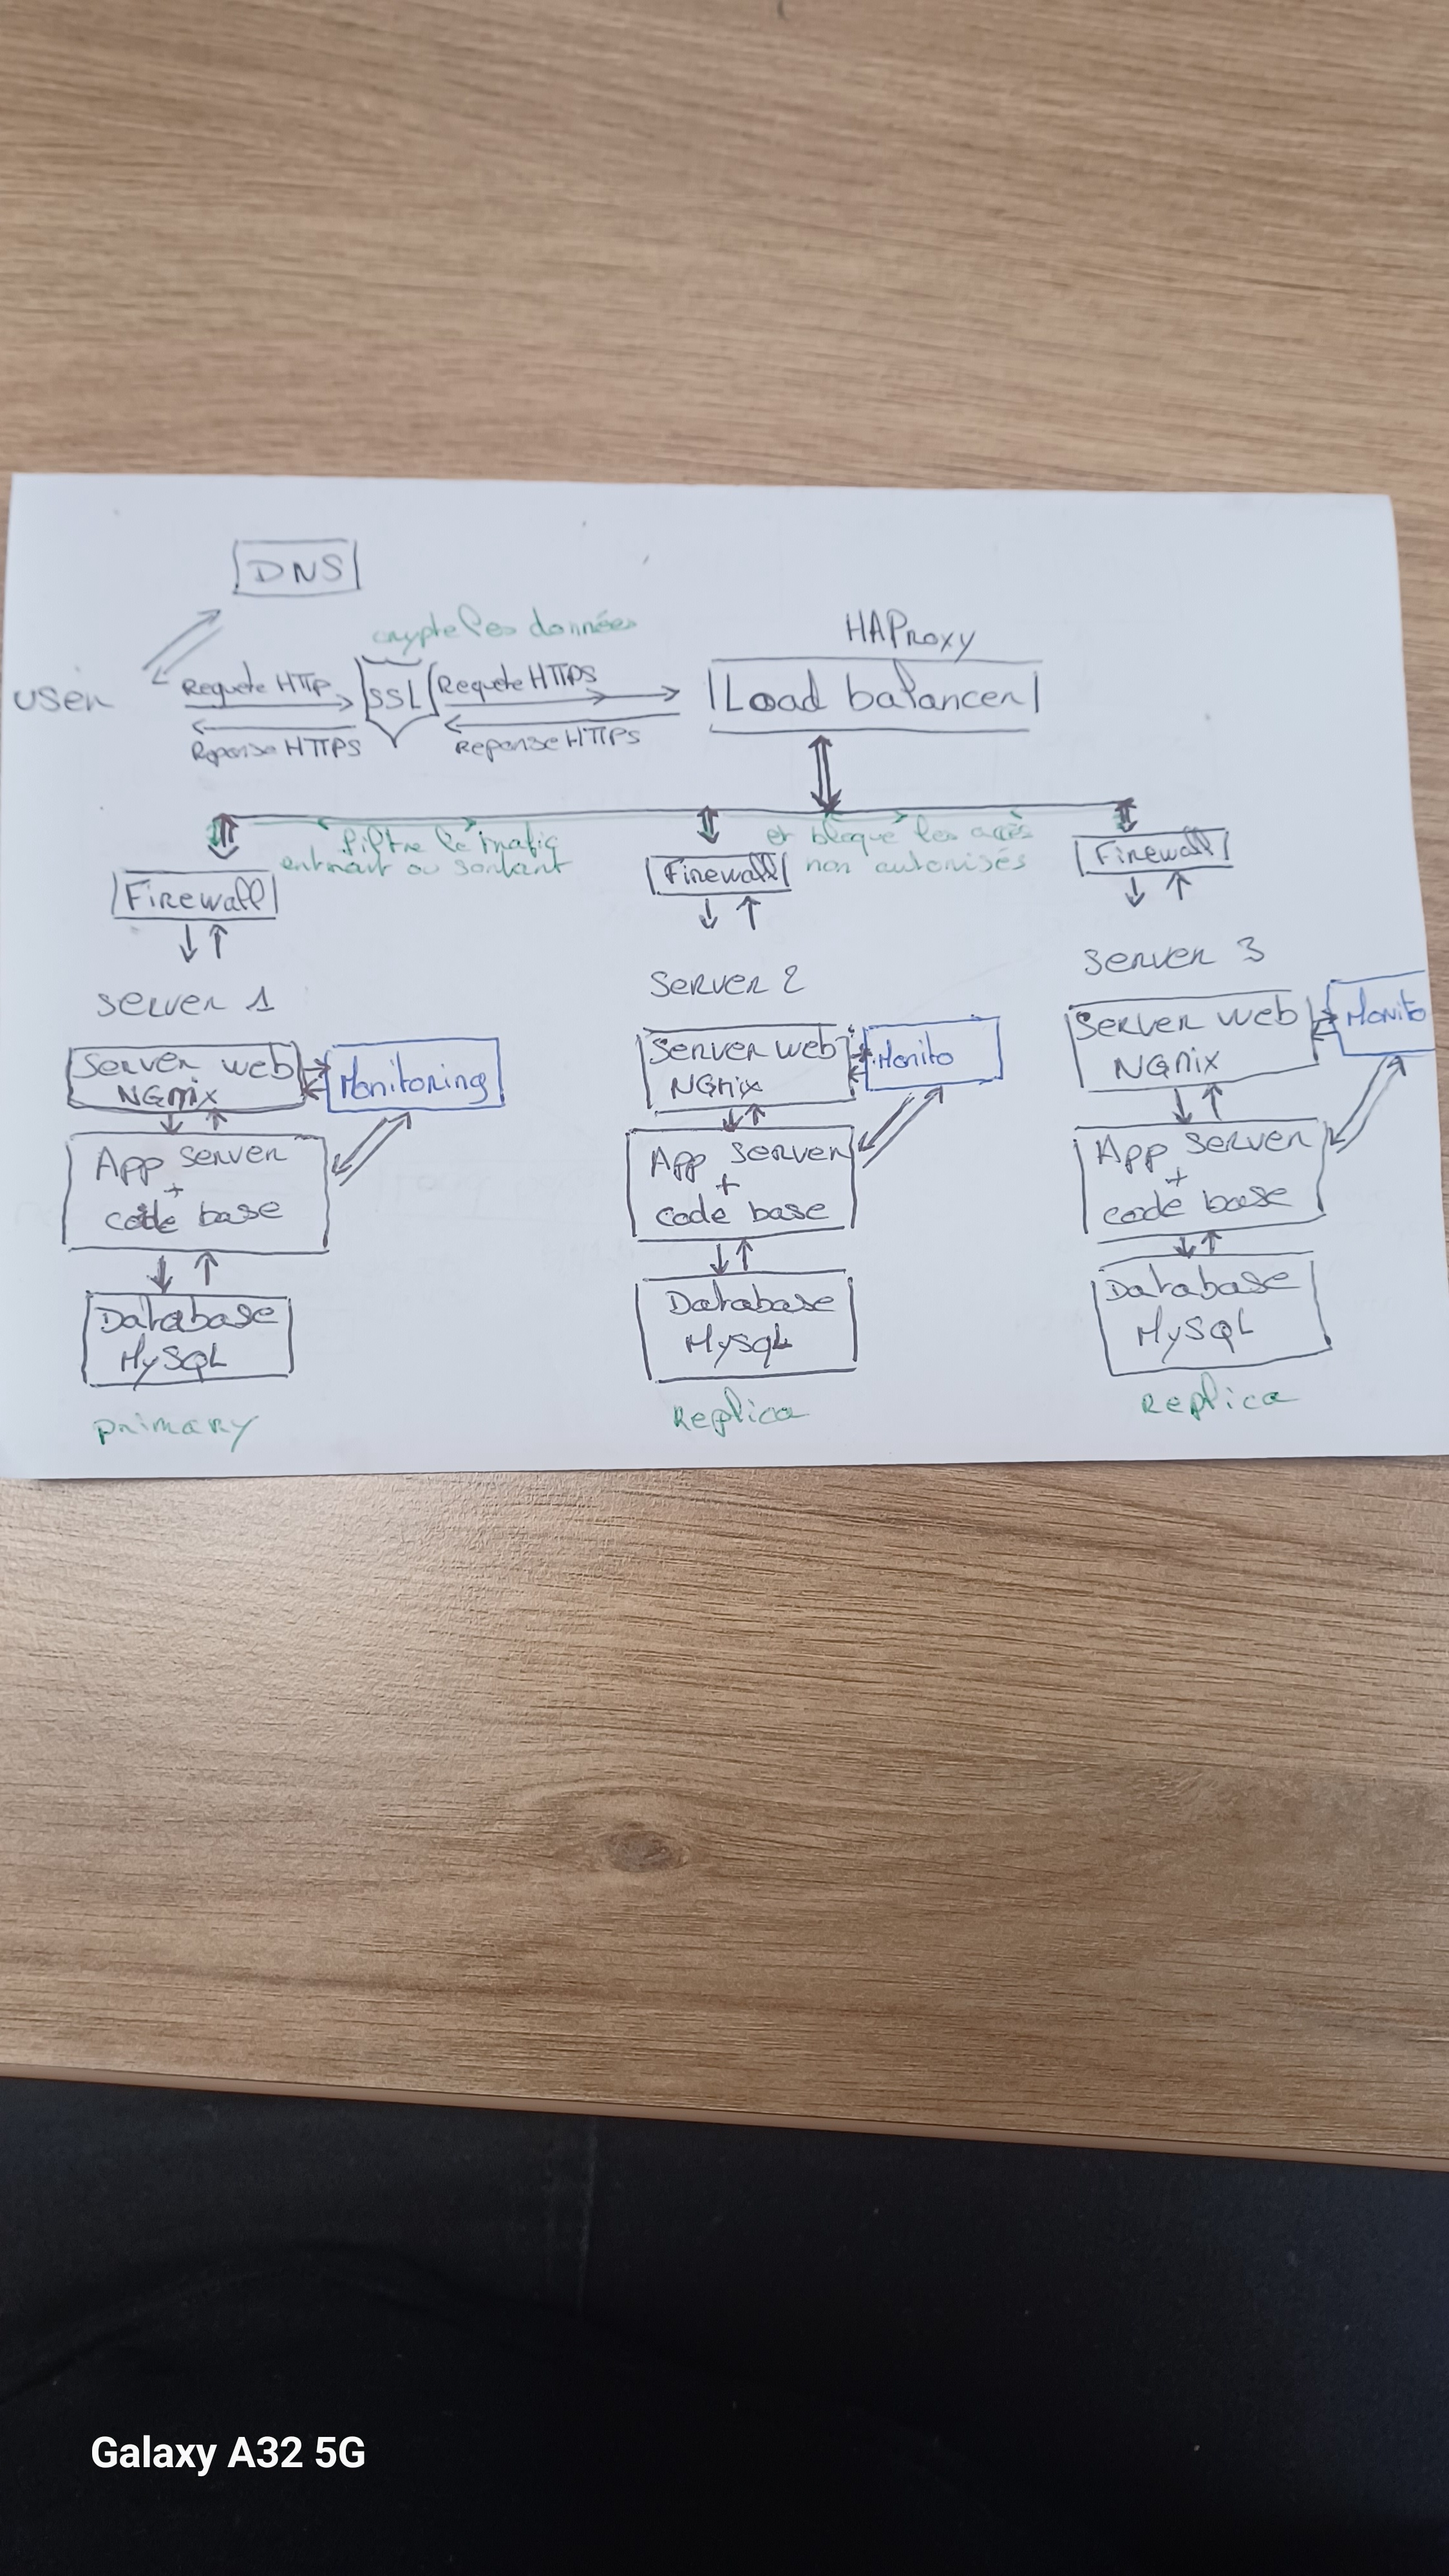 DNS
crypte les données
HAProxy
user
Requete HTTP
SSL
Requete HTTPS
Load balancer
Reponse HTTPS
Reponse HTTPS
filtre le trafic
entrant ou sortant
et bloque les accès
non autorisés
Firewall
Firewall
Firewall
server 1
Server 2
Server 3
Server web
NGnix
Monitoring
Server web
NGnix
Monito
Server web
NGnix
Monito
App server
+
code base
App server
+
code base
App server
+
code base
Database
MySQL
Database
MySQL
Database
MySQL
primary
Replica
Replica
Galaxy A32 5G